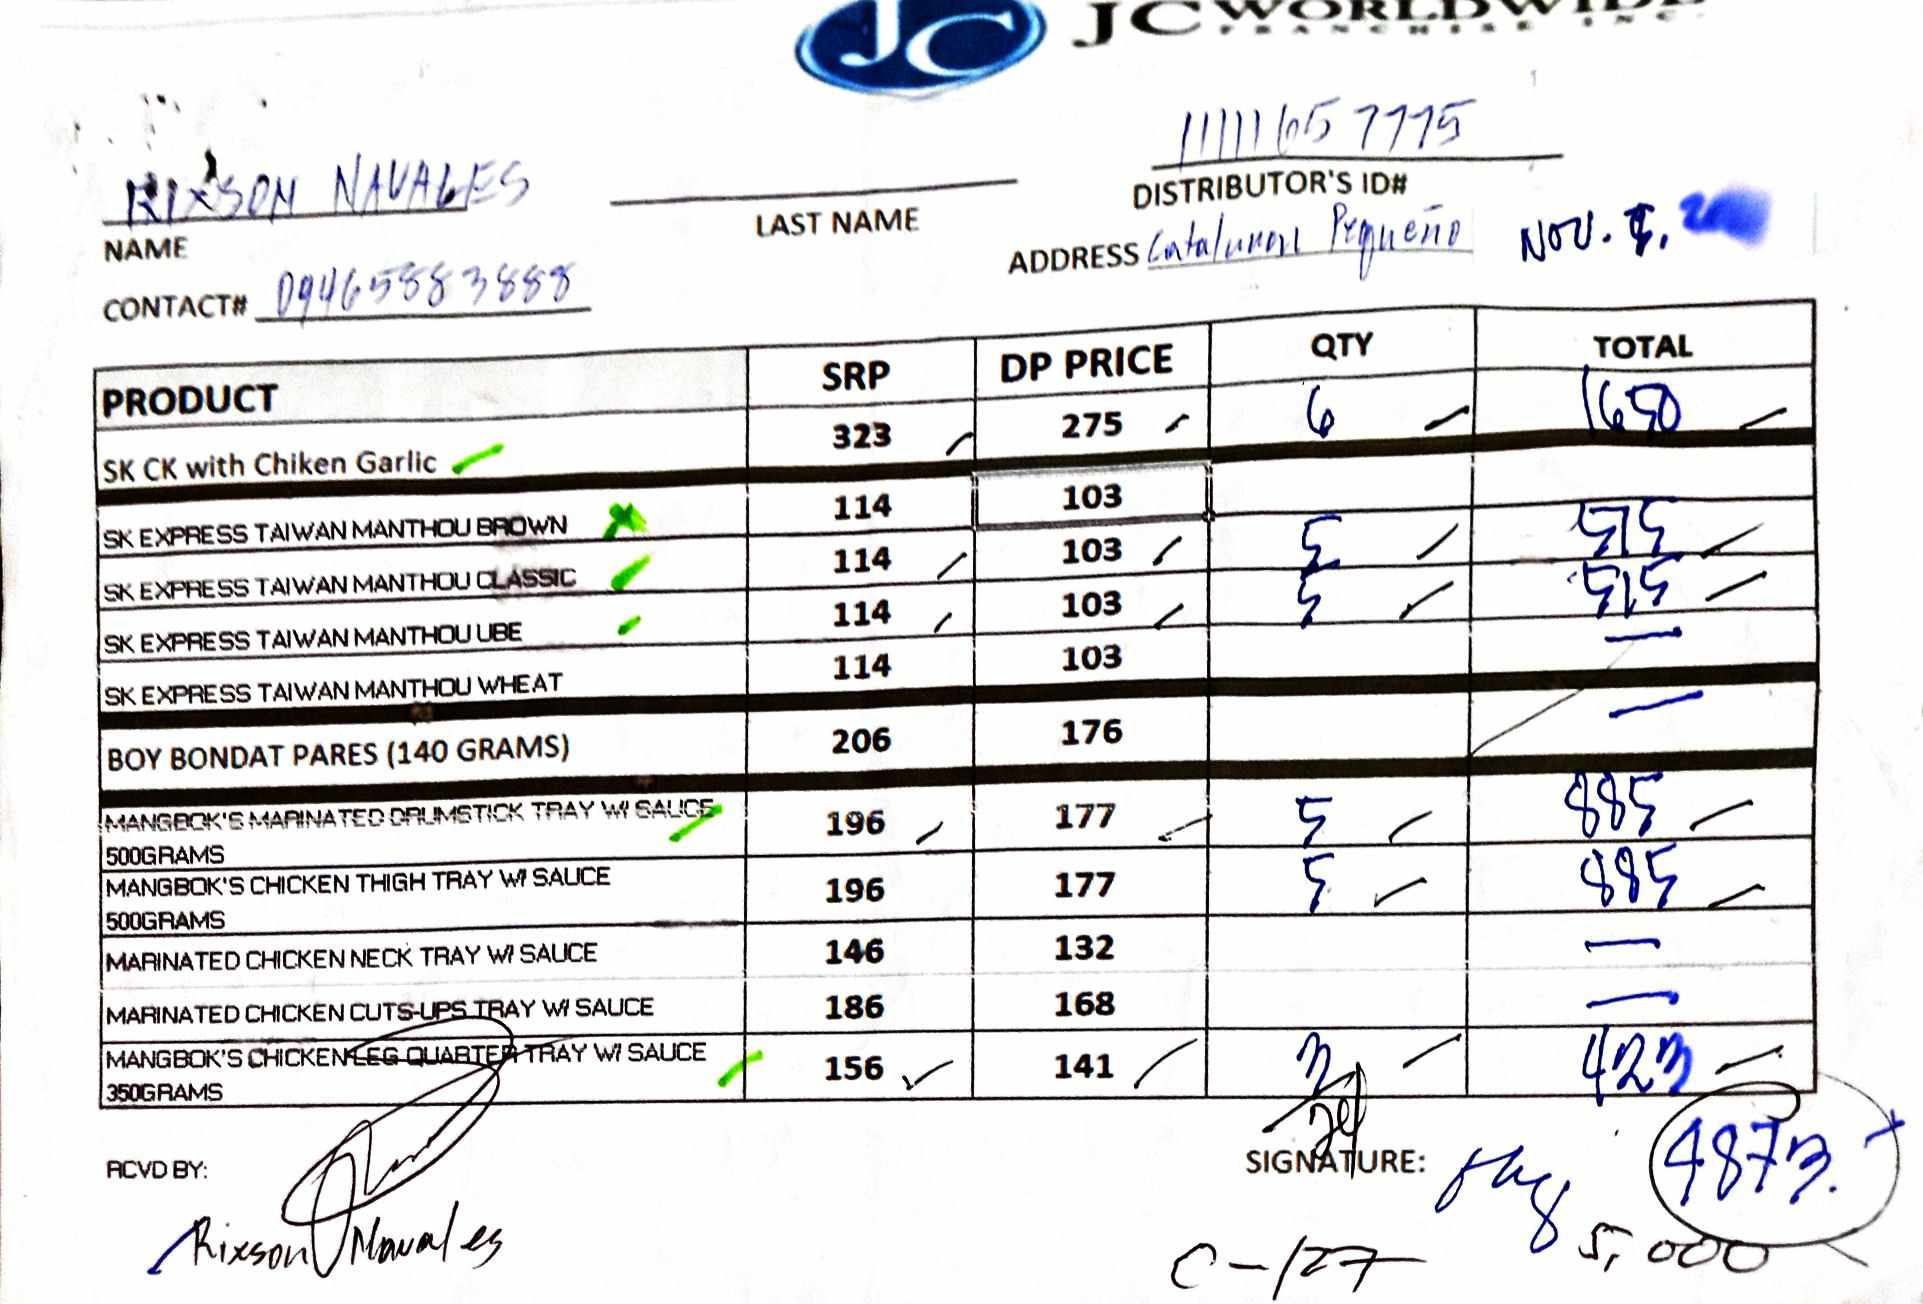 JC JC WORLDWIDE
FRANCHISE INC.
1111165 7775
RIXSON NAVALES
DISTRIBUTOR'S ID#
NAME LAST NAME
ADDRESS Catalunan Pequeño NOV.
CONTACT# 09465883888
PRODUCT SRP DP PRICE QTY TOTAL
SK CK with Chiken Garlic 323 275 6 1650
SK EXPRESS TAIWAN MANTHOU BROWN 114 103
SK EXPRESS TAIWAN MANTHOU CLASSIC 114 103 5 515
SK EXPRESS TAIWAN MANTHOU UBE 114 103 5 515
SK EXPRESS TAIWAN MANTHOU WHEAT 114 103 —
BOY BONDAT PARES (140 GRAMS) 206 176 —
MANGBOK'S MARINATED DRUMSTICK TRAY W/ SAUCE
500GRAMS 196 177 5 885
MANGBOK'S CHICKEN THIGH TRAY W/ SAUCE
500GRAMS 196 177 5 885
MARINATED CHICKEN NECK TRAY W/ SAUCE 146 132 —
MARINATED CHICKEN CUTS-UPS TRAY W/ SAUCE 186 168 —
MANGBOK'S CHICKEN LEG QUARTER TRAY W/ SAUCE
350GRAMS 156 141 3 423
29
RCVD BY: SIGNATURE: 4873.
Rixson Navales
C-127 5,000